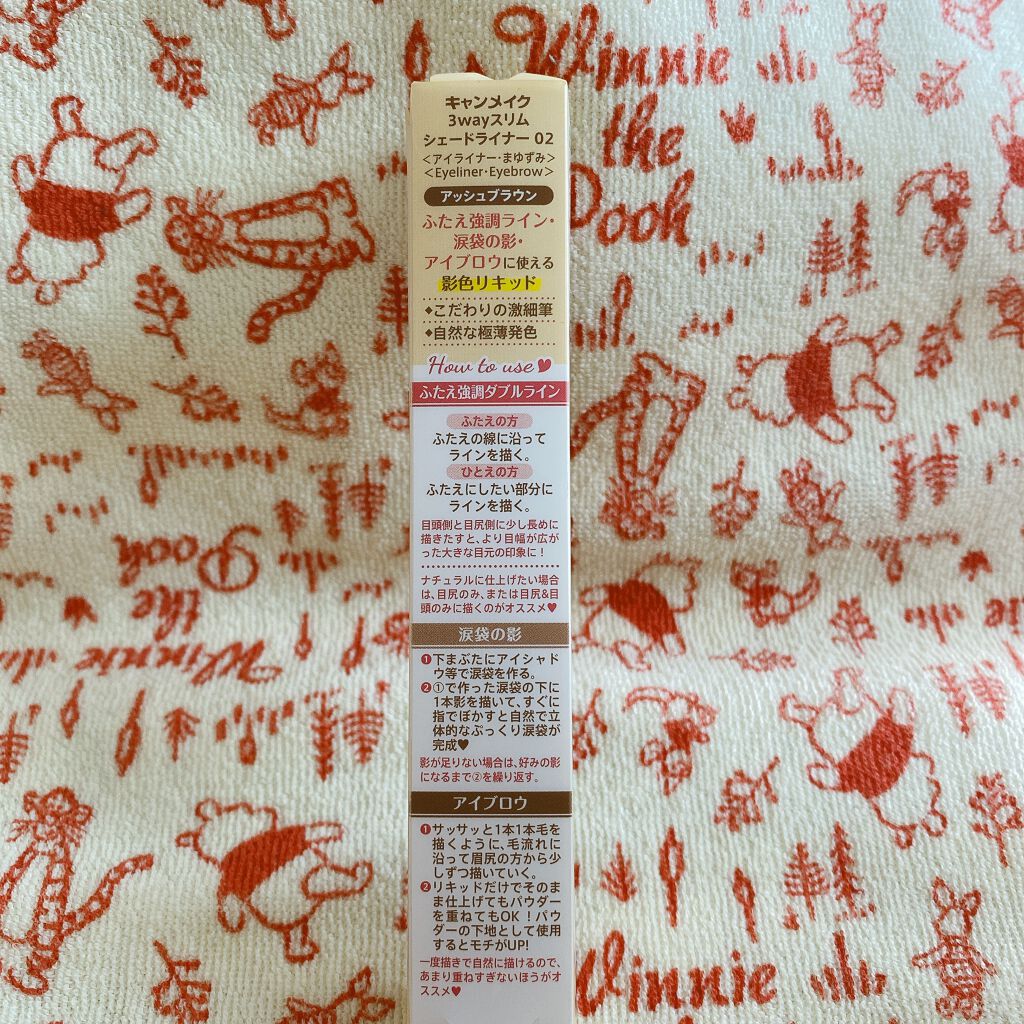 Winnie
the
Pooh
キャンメイク
3wayスリム
シェードライナー 02
<アイライナー・まゆずみ>
<Eyeliner・Eyebrow>
アッシュブラウン
ふたえ強調ライン・
涙袋の影・
アイブロウに使える
影色リキッド
◆こだわりの激細筆
◆自然な極薄発色
How to use♥
ふたえ強調ダブルライン
ふたえの方
ふたえの線に沿って
ラインを描く。
ひとえの方
ふたえにしたい部分に
ラインを描く。
目頭側と目尻側に少し長めに
描きたすと、より目幅が広が
った大きな目元の印象に!
ナチュラルに仕上げたい場合
は、目尻のみ、または目尻&目
頭のみに描くのがオススメ♥
涙袋の影
❶下まぶたにアイシャド
ウ等で涙袋を作る。
❷①で作った涙袋の下に
1本影を描いて、すぐに
指でぼかすと自然で立
体的なぷっくり涙袋が
完成♥
影が足りない場合は、好みの影
になるまで②を繰り返す。
アイブロウ
❶サッサッと1本1本毛を
描くように、毛流れに
沿って眉尻の方から少
しずつ描いていく。
❷リキッドだけでそのま
ま仕上げてもパウダー
を重ねてもOK!パウ
ダーの下地として使用
するとモチがUP!
一度描きで自然に描けるので、
あまり重ねすぎないほうがオ
ススメ♥
Pooh
the
Winnie
Winnie